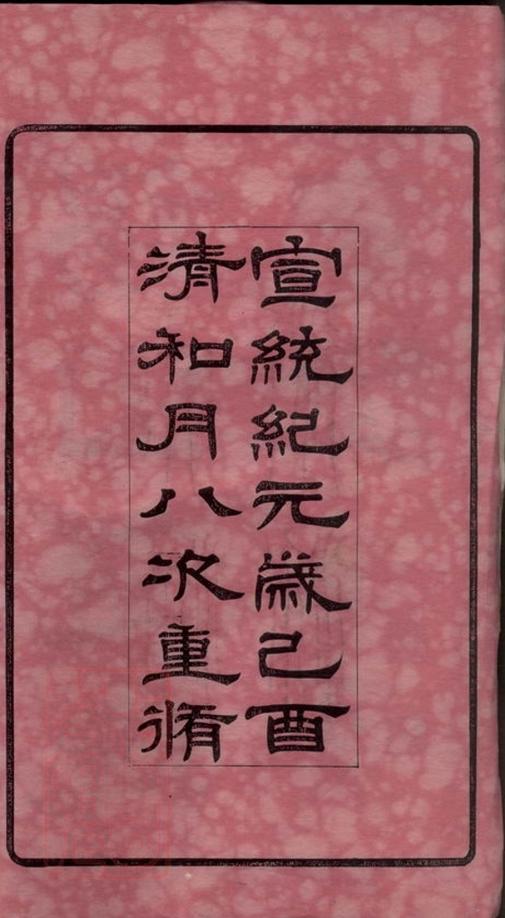 宣統紀元歲己酉
清和月八次重脩